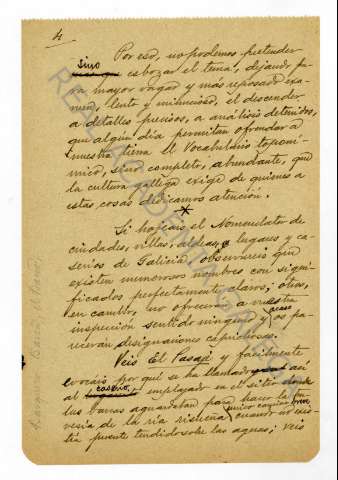 4
Por eso, no podemos pretender
sino
esbozar el tema, dejando, pa-
ra mayor vagar y más reposado exa-
men, lento y minucioso, el descender
a detalles precisos, a análisis detenidos,
que algun día permitan ofrendar a
nuestra tierra el Vocabulario toponí-
mico, sino completo, abundante, que
la cultura gallega exige de quienes a
estas cosas dedicamos atención.
*
Si hojeáis el Nomenclator de
ciudades, villas, aldeas, lugares y ca-
seríos de Galicia observareis que
existen numerosos nombres con signi-
ficados perfectamente claros; otros,
en cambio, no ofrecen a vuestra
inspección sentido ninguno y acaso os pa-
recerán designaciones caprichosas.
Veis El Pasaje y facilmente
evocais por qué se ha llamado así
al caserío, emplazado en el sitio donde
las barcas aguardaban para hacer la tra-
vesía de la ría risueña cuando no exis-
tía puente tendido sobre las aguas; veis
REAL ACADEMIA GALEGA